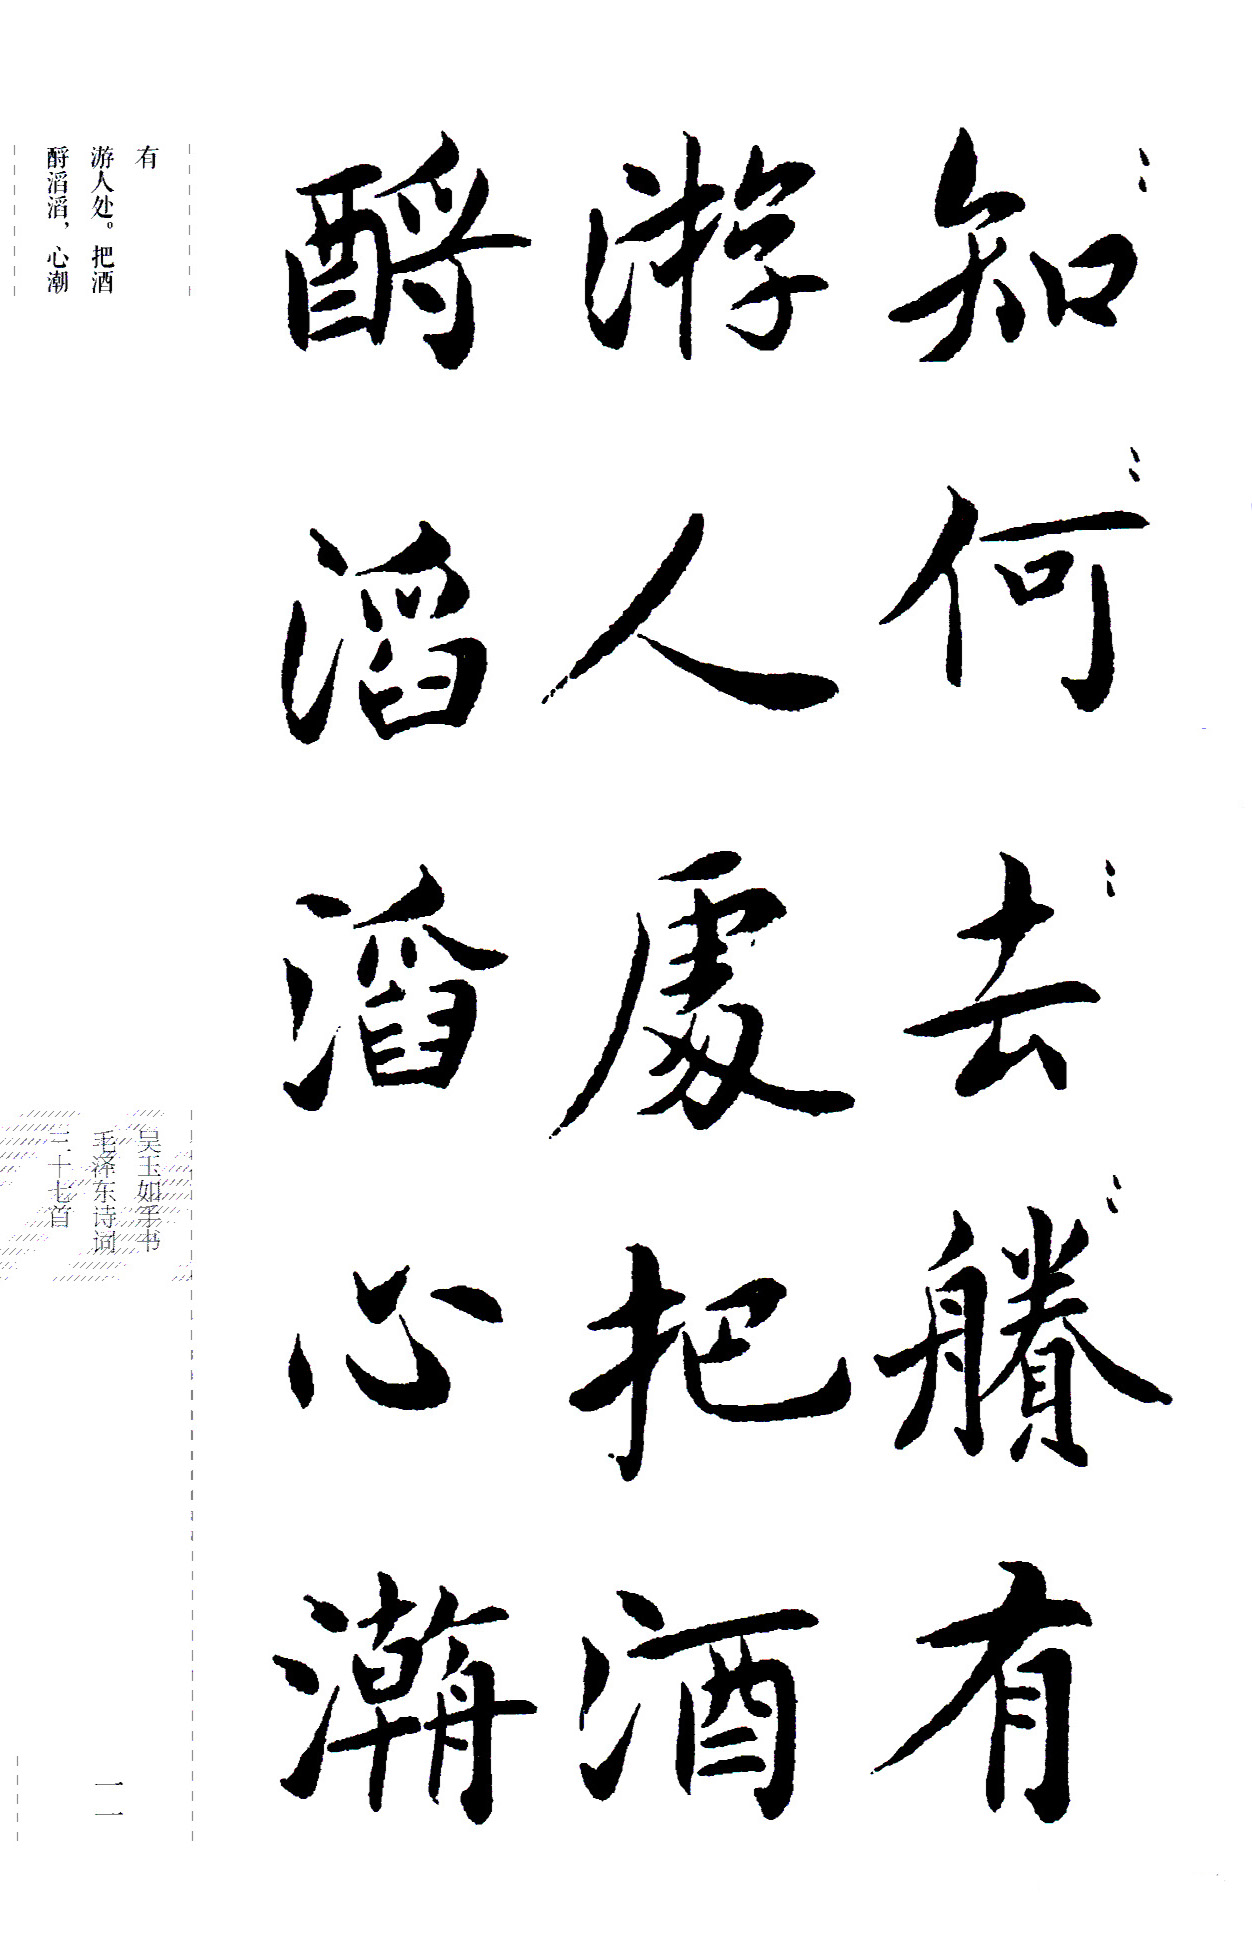 知何去賸有
游人處把酒
酹滔滔心潮
有
游人处。把酒
酹滔滔，心潮
吴玉如手书
毛泽东诗词
三十七首
一一